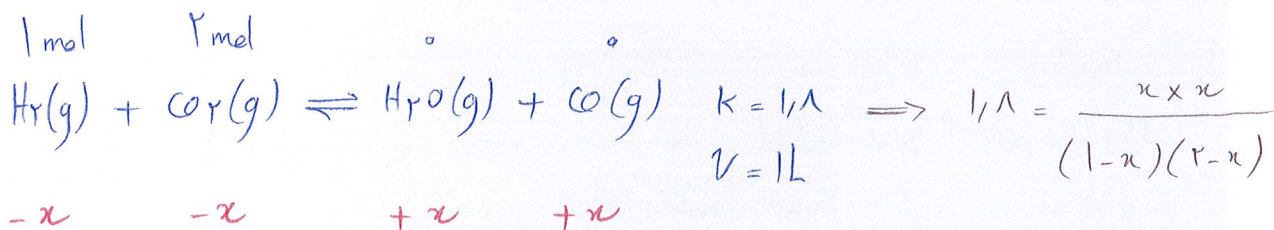 1 mol ۲ mol ۰ ۰
H۲(g) + CO۲(g) ⇌ H۲O(g) + CO(g) K = ۱,۸ ⟹ ۱,۸ = x × x / (۱-x)(۲-x)
V = 1L
-x -x +x +x